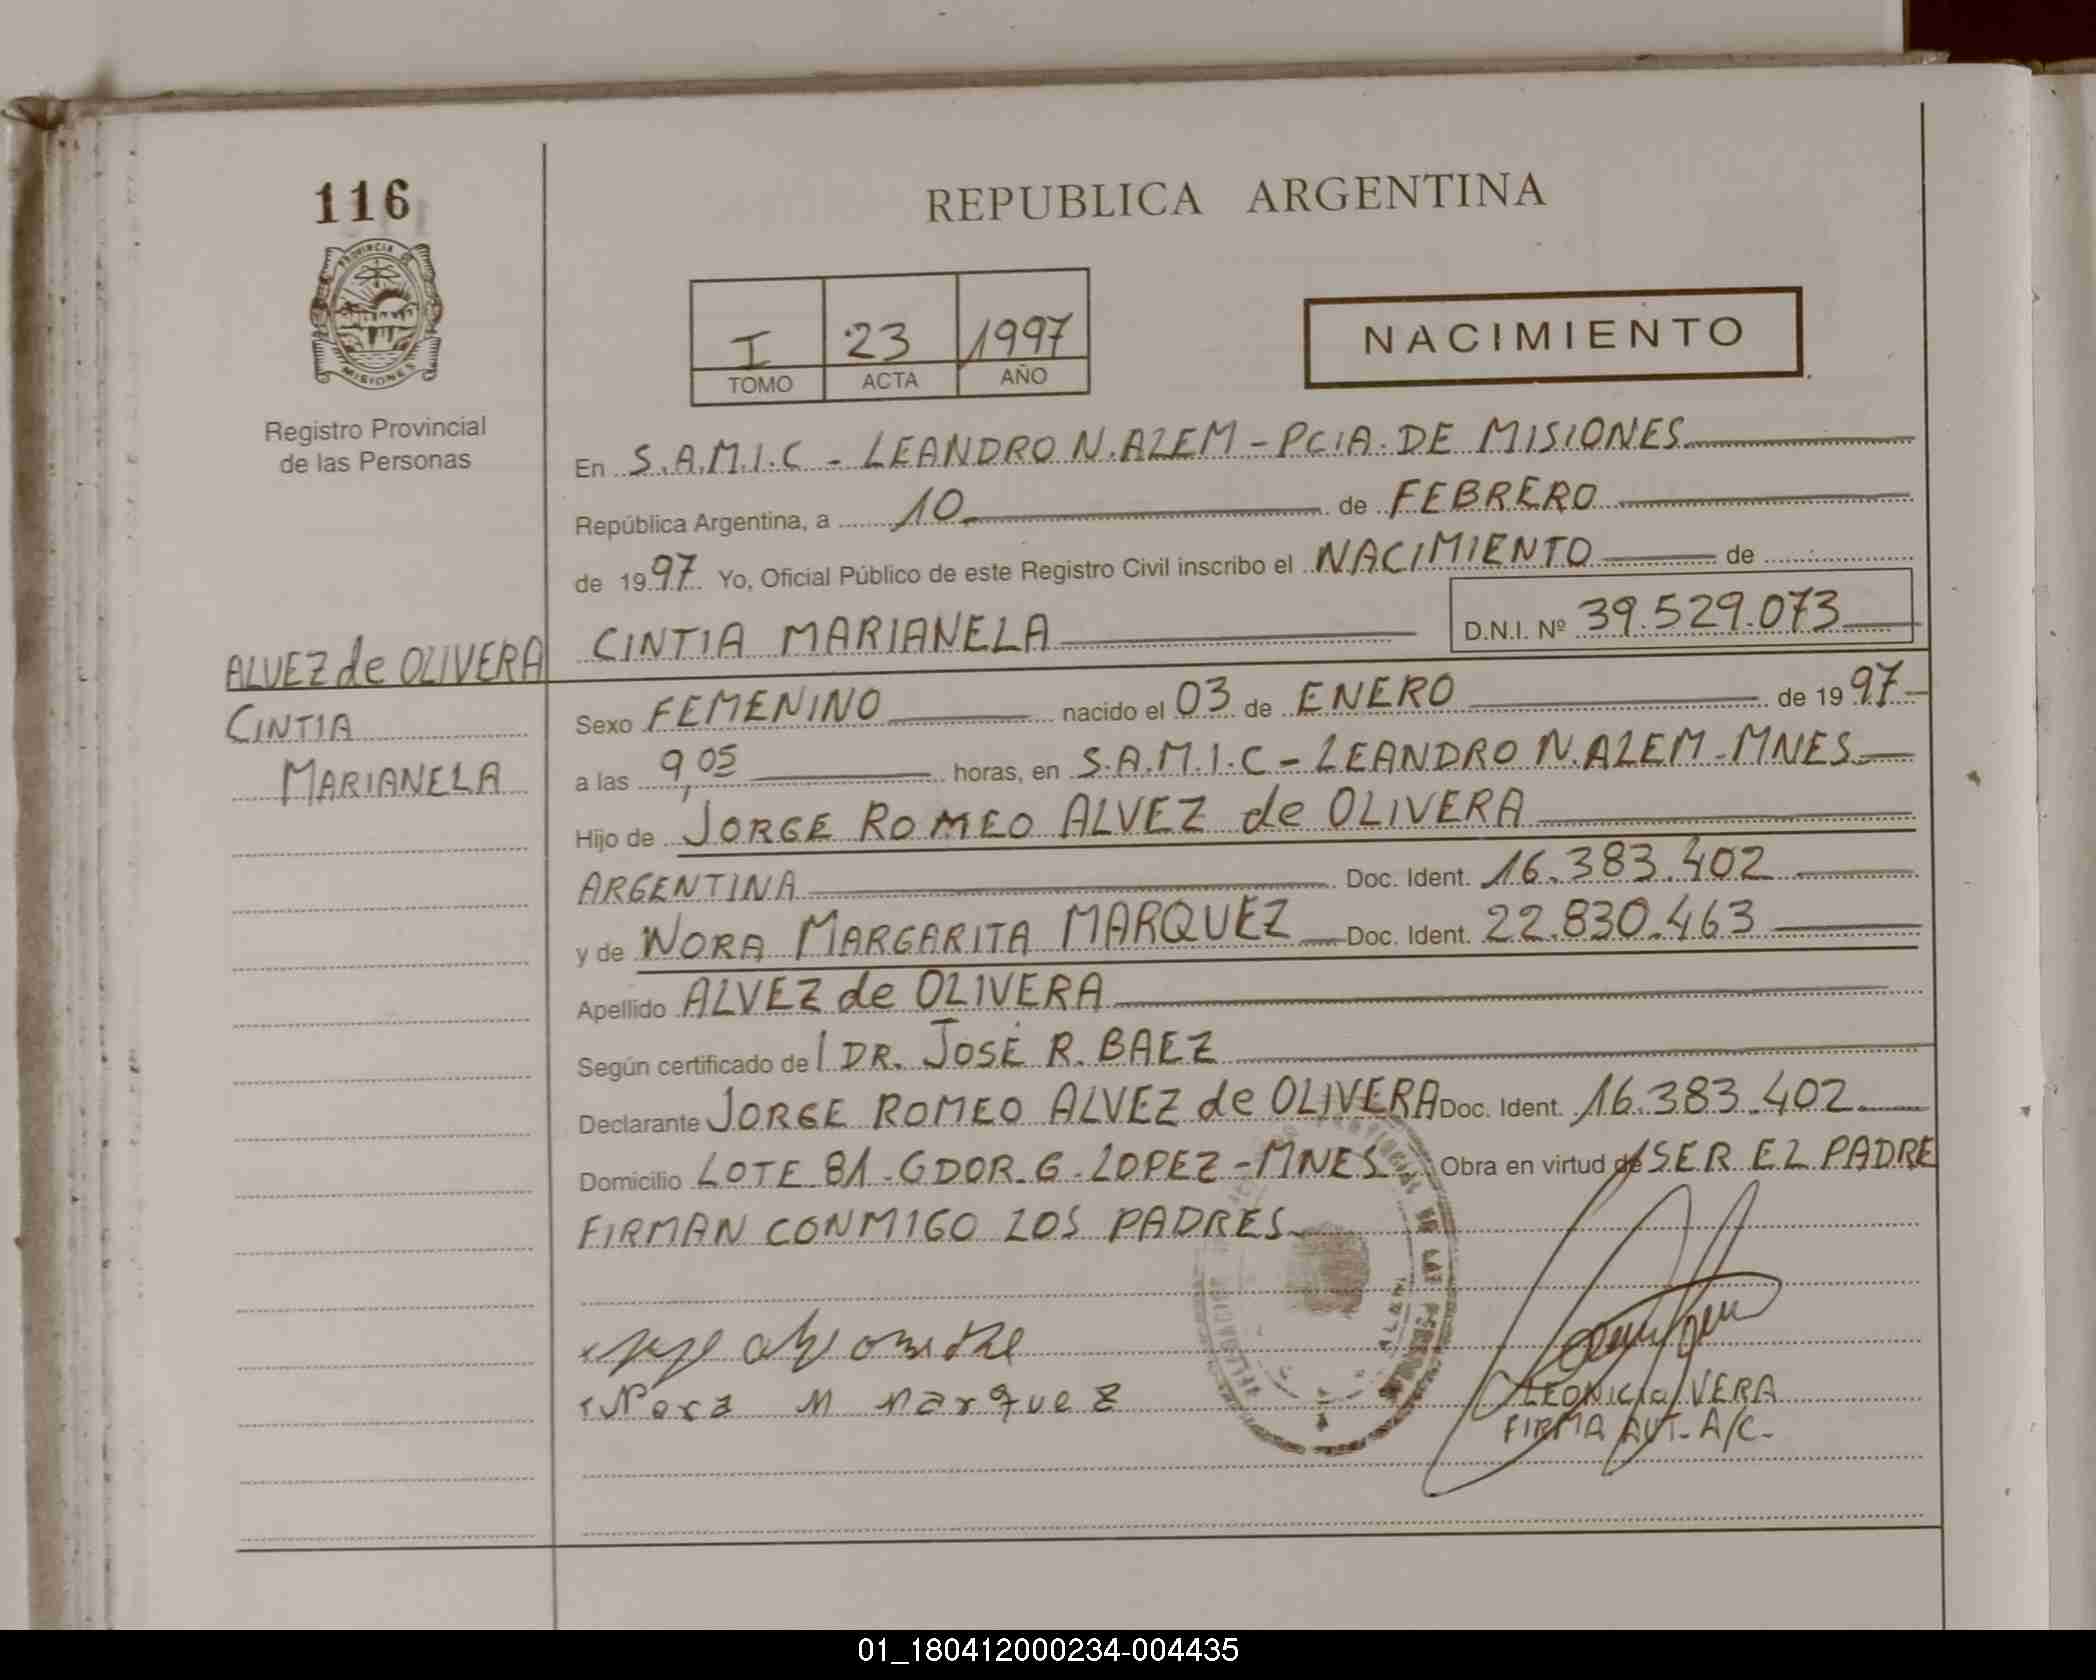 116
REPUBLICA ARGENTINA
PROVINCIA DE
MISIONES
Registro Provincial
de las Personas
I 23 1997
TOMO ACTA AÑO
NACIMIENTO
En S.A.M.I.C - LEANDRO N. ALEM - PCIA. DE MISIONES
República Argentina, a 10 de FEBRERO
de 1997 Yo, Oficial Público de este Registro Civil inscribo el NACIMIENTO de
CINTIA MARIANELA D.N.I. Nº 39.529.073
ALVEZ de OLIVERA
CINTIA
MARIANELA
Sexo FEMENINO nacido el 03 de ENERO de 1997
a las 9,05 horas, en S.A.M.I.C - LEANDRO N. ALEM - MNES
Hijo de JORGE ROMEO ALVEZ de OLIVERA
ARGENTINA Doc. Ident. 16.383.402
y de NORA MARGARITA MARQUEZ Doc. Ident. 22.830.463
Apellido ALVEZ de OLIVERA
Según certificado de / DR. JOSÉ R. BAEZ
Declarante JORGE ROMEO ALVEZ de OLIVERA Doc. Ident. 16.383.402
Domicilio LOTE 81 - GDOR. G. LOPEZ - MNES Obra en virtud de SER EL PADRE
FIRMAN CONMIGO LOS PADRES
Nora M Marquez
VERA
FIRMA AUT. A/C.
01_180412000234-004435